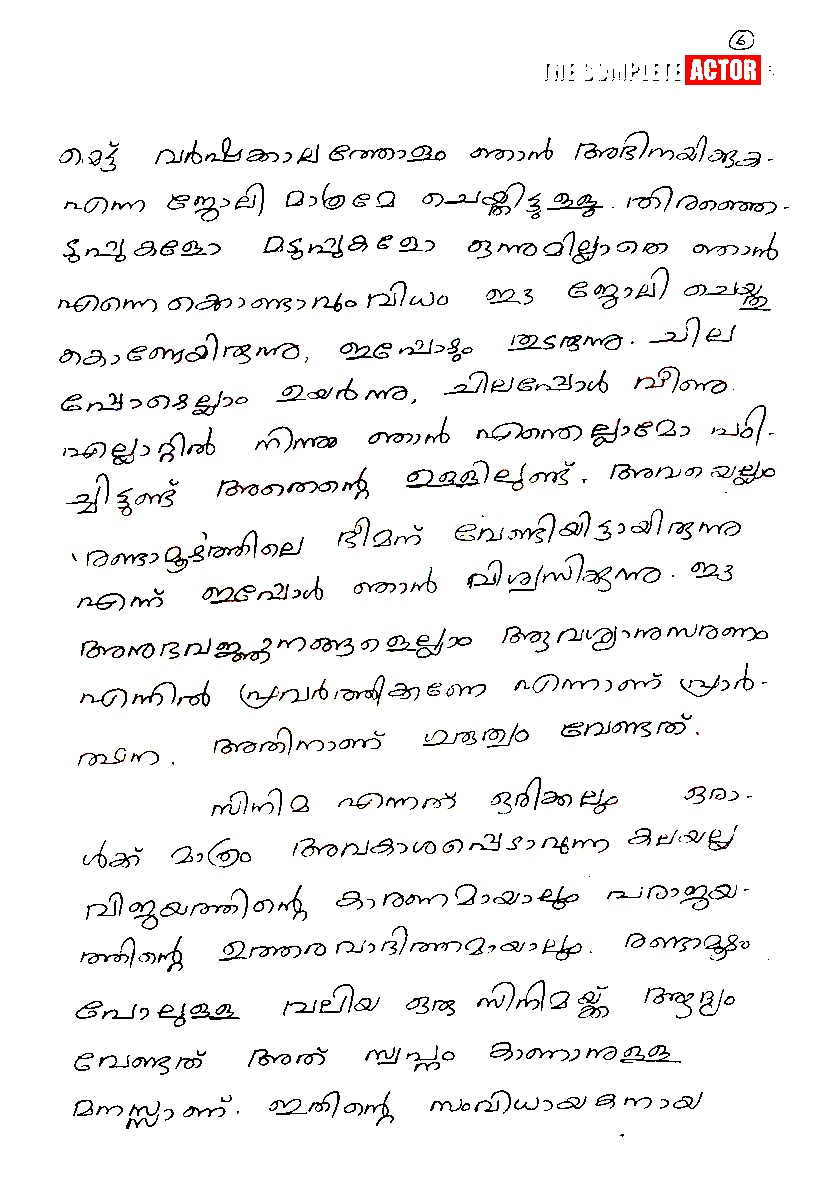 6
THE COMPLETE ACTOR
മെട്ട് വർഷക്കാലത്തോളം ഞാൻ അഭിനയിക്കുക-
എന്ന ജോലി മാത്രമേ ചെയ്തിട്ടുള്ളൂ. തിരഞ്ഞെ-
ടുപ്പുകളോ മടുപ്പുകളോ ഒന്നുമില്ലാതെ ഞാൻ
എന്നെക്കൊണ്ടാവും വിധം ഈ ജോലി ചെയ്തു
കൊണ്ടേയിരുന്നു, ഇപ്പോഴും തുടരുന്നു. ചില
പ്പോഴെല്ലാം ഉയർന്നു, ചിലപ്പോൾ വീണു.
എല്ലാറ്റിൽ നിന്നും ഞാൻ എന്തെല്ലാമോ പഠി-
ച്ചിട്ടുണ്ട് അതെന്റെ ഉള്ളിലുണ്ട്. അവയെല്ലാം
'രണ്ടാമൂഴ'ത്തിലെ ഭീമന് വേണ്ടിയിട്ടായിരുന്നു
എന്ന് ഇപ്പോൾ ഞാൻ വിശ്വസിക്കുന്നു. ഈ
അനുഭവജ്ഞാനങ്ങളെല്ലാം ആവശ്യാനുസരണം
എന്നിൽ പ്രവർത്തിക്കണേ എന്നാണ് പ്രാർ-
ത്ഥന. അതിനാണ് ഗുരുത്വം വേണ്ടത്.
സിനിമ എന്നത് ഒരിക്കലും ഒരാ-
ൾക്ക് മാത്രം അവകാശപ്പെടാവുന്ന കലയല്ല
വിജയത്തിന്റെ കാരണമായാലും പരാജയ-
ത്തിന്റെ ഉത്തരവാദിത്തമായാലും. രണ്ടാമൂഴം
പോലുള്ള വലിയ ഒരു സിനിമയ്ക്ക് ആദ്യം
വേണ്ടത് അത് സ്വപ്നം കാണാനുള്ള
മനസ്സാണ്. ഇതിന്റെ സംവിധായകനായ